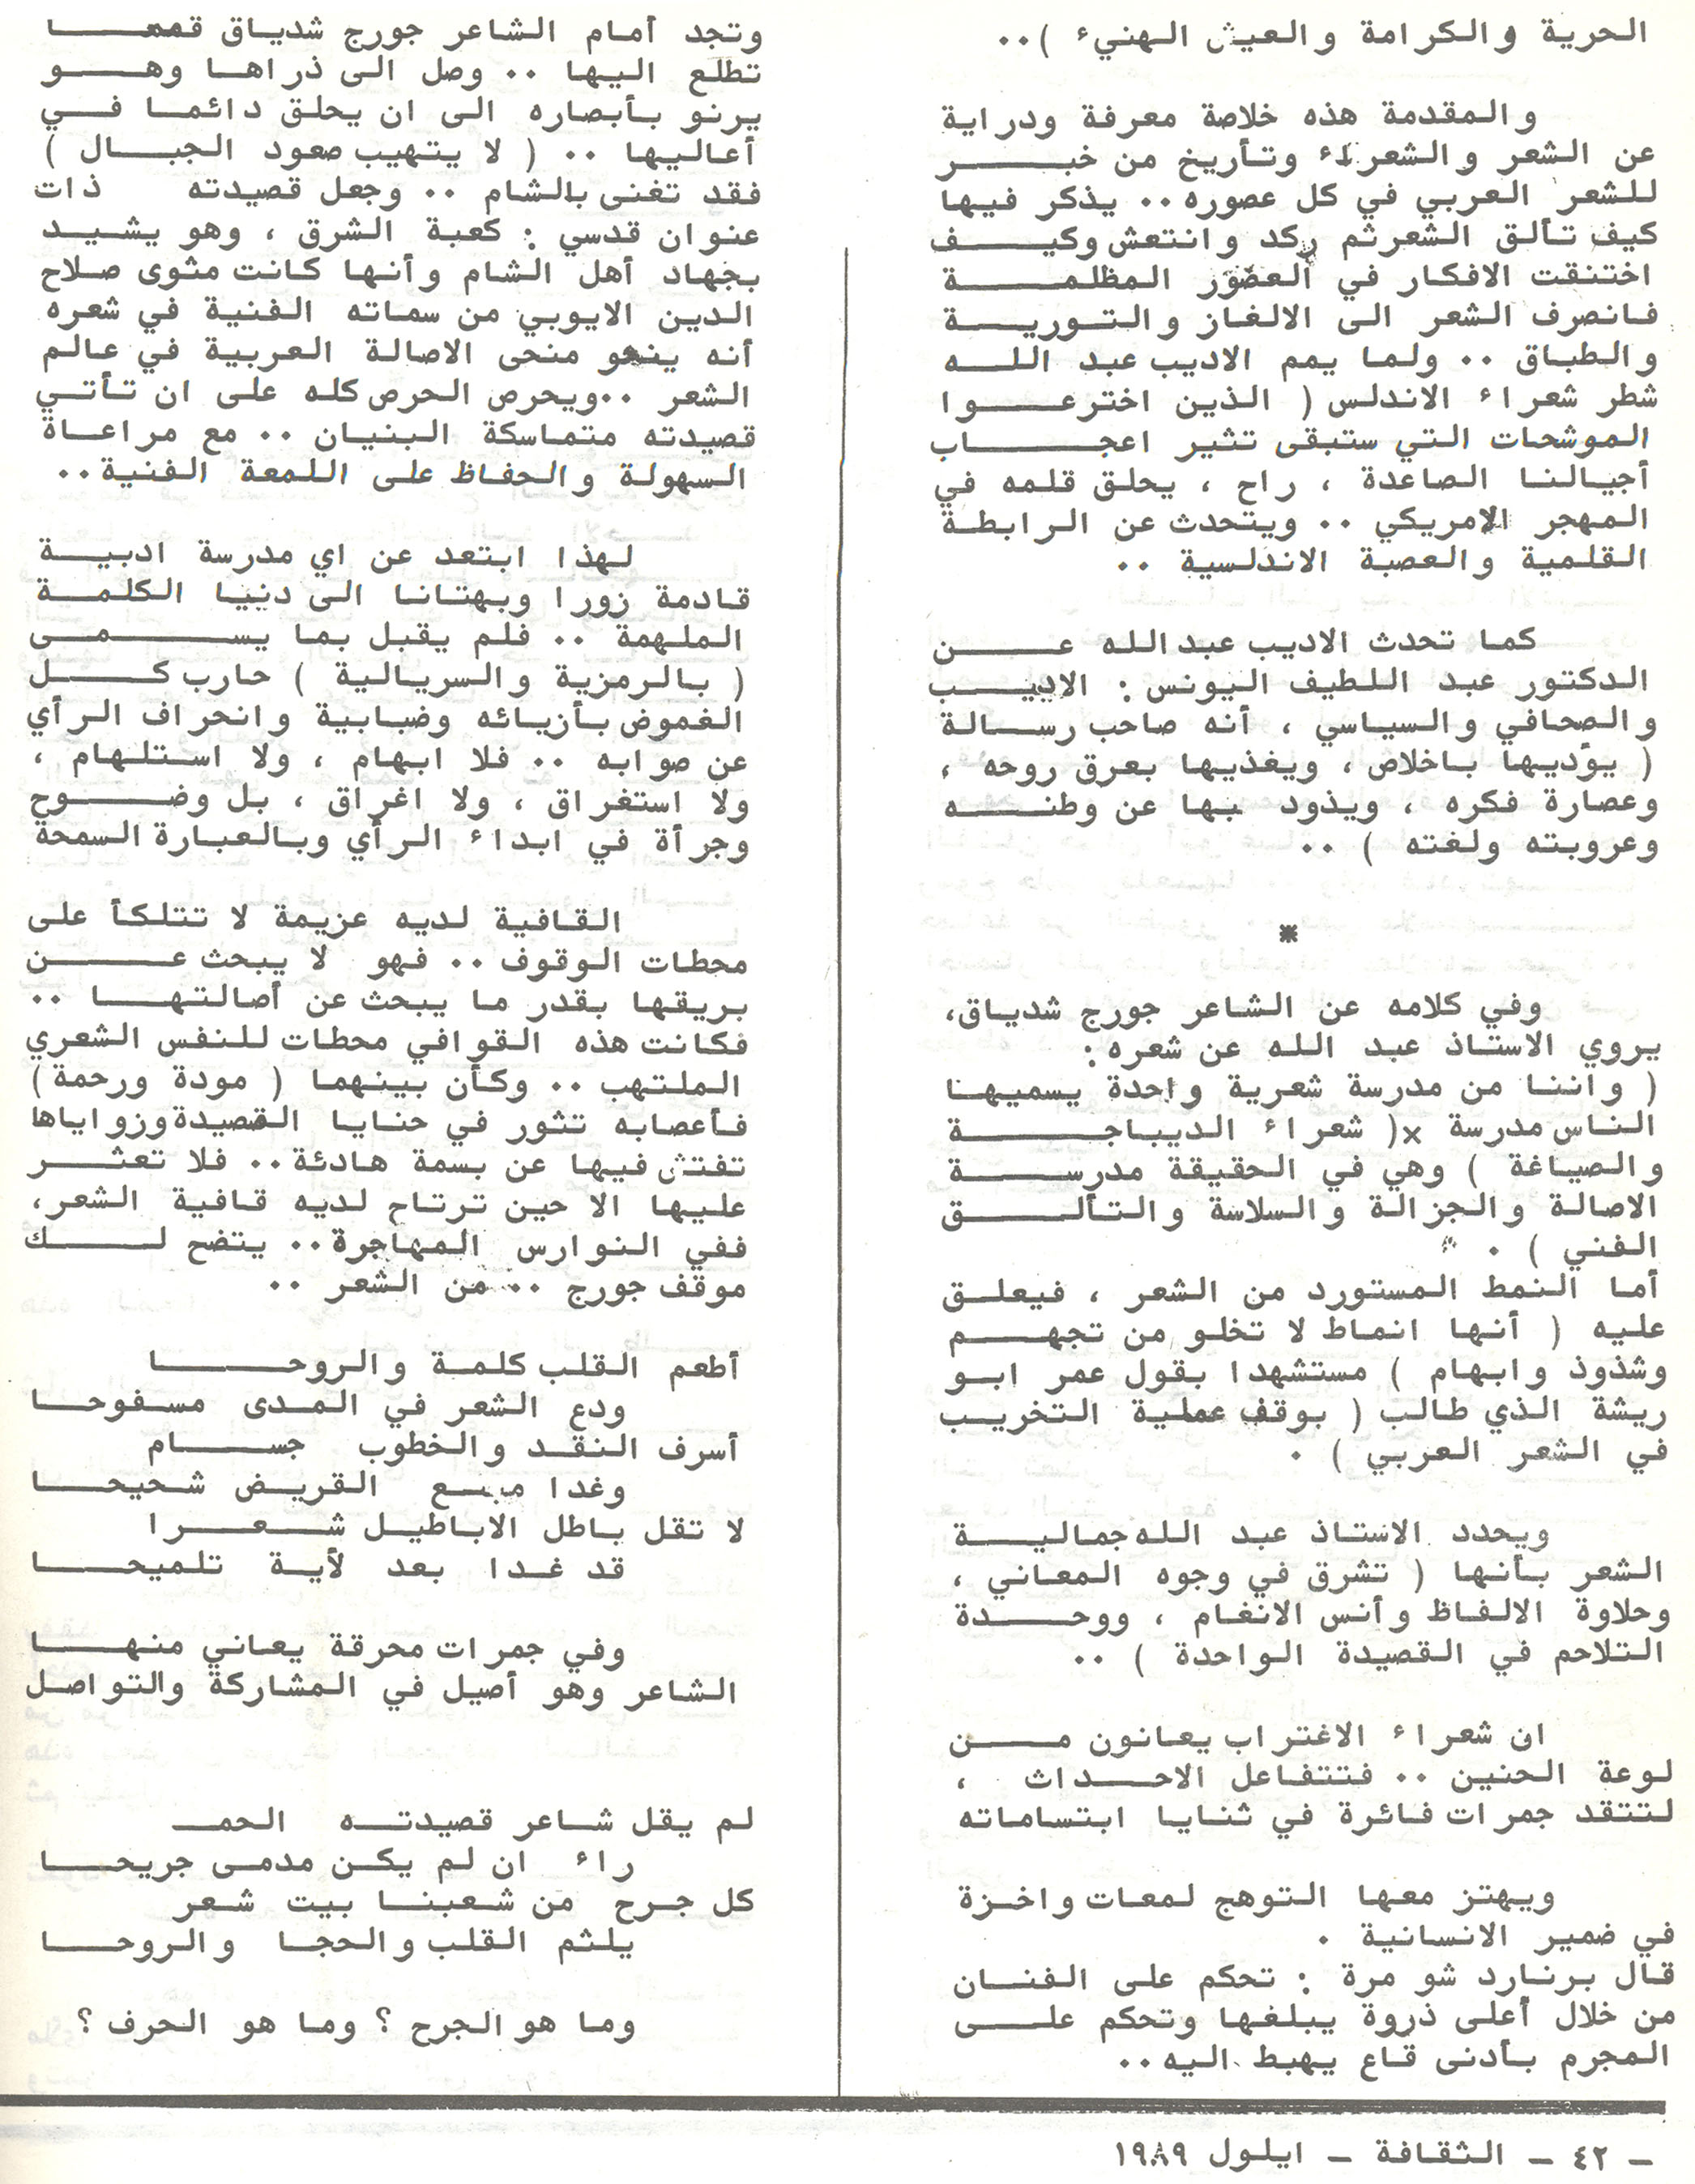 الحرية والكرامة والعيش الهنيء )..
والمقدمة هذه خلاصة معرفة ودراية
عن الشعر والشعراء وتأريخ من خبر
للشعر العربي في كل عصوره .. يذكر فيها
كيف تألق الشعر ثم ركد وانتعش وكيف
اختنقت الافكار في العصور المظلمة
فانصرف الشعر الى الالغاز والتورية
والطباق .. ولما يمم الاديب عبد الله
شطر شعراء الاندلس ( الذين اخترعوا
الموشحات التي ستبقى تثير اعجاب
أجيالنا الصاعدة ، راح ، يحلق قلمه في
المهجر الامريكي .. ويتحدث عن الرابطة
القلمية والعصبة الاندلسية ..
كما تحدث الاديب عبد الله عن
الدكتور عبد اللطيف اليونس : الاديب
والصحافي والسياسي ، أنه صاحب رسالة
( يؤديها باخلاص ، ويغذيها بعرق روحه ،
وعصارة فكره ، ويذود بها عن وطنه
وعروبته ولغته ) ..
*
وفي كلامه عن الشاعر جورج شدياق،
يروي الاستاذ عبد الله عن شعره :
( واننا من مدرسة شعرية واحدة يسميها
الناس مدرسة x( شعراء الديباجة
والصياغة ) وهي في الحقيقة مدرسة
الاصالة والجزالة والسلاسة والتألق
الفني ) .
أما النمط المستورد من الشعر ، فيعلق
عليه ( أنها انماط لا تخلو من تجهم
وشذوذ وابهام ) مستشهدا بقول عمر ابو
ريشة الذي طالب ( بوقف عملية التخريب
في الشعر العربي ) .
ويحدد الاستاذ عبد الله جمالية
الشعر بأنها ( تشرق في وجوه المعاني ،
وحلاوة الالفاظ وأنس الانغام ، ووحدة
التلاحم في القصيدة الواحدة ) ..
ان شعراء الاغتراب يعانون من
لوعة الحنين .. فتتفاعل الاحداث ،
لتتقد جمرات فائرة في ثنايا ابتساماته
ويهتز معها التوهج لمعات واخزة
في ضمير الانسانية .
قال برنارد شو مرة : تحكم على الفنان
من خلال أعلى ذروة يبلغها وتحكم على
المجرم بأدنى قاع يهبط اليه ..
وتجد أمام الشاعر جورج شدياق قمما
تطلع اليها .. وصل الى ذراها وهو
يرنو بأبصاره الى ان يحلق دائما في
أعاليها .. ( لا يتهيب صعود الجبال )
فقد تغنى بالشام .. وجعل قصيدته ذات
عنوان قدسي : كعبة الشرق ، وهو يشيد
بجهاد أهل الشام وأنها كانت مثوى صلاح
الدين الايوبي من سماته الفنية في شعره
أنه ينحو منحى الاصالة العربية في عالم
الشعر ..ويحرص الحرص كله على ان تأتي
قصيدته متماسكة البنيان .. مع مراعاة
السهولة والحفاظ على اللمعة الفنية ..
لهذا ابتعد عن اي مدرسة ادبية
قادمة زورا وبهتانا الى دنيا الكلمة
الملهمة .. فلم يقبل بما يسمى
( بالرمزية والسريالية ) حارب كل
الغموض بأزيائه وضبابية وانحراف الرأي
عن صوابه .. فلا ابهام ، ولا استلهام ،
ولا استغراق ، ولا اغراق ، بل وضوح
وجرأة في ابداء الرأي وبالعبارة السمحة
القافية لديه عزيمة لا تتلكأ على
محطات الوقوف .. فهو لا يبحث عن
بريقها بقدر ما يبحث عن أصالتها ..
فكانت هذه القوافي محطات للنفس الشعري
الملتهب .. وكأن بينهما ( مودة ورحمة )
فأعصابه تثور في حنايا القصيدة وزواياها
تفتش فيها عن بسمة هادئة .. فلا تعثر
عليها الا حين ترتاح لديه قافية الشعر،
ففي النوارس المهاجرة .. يتضح لك
موقف جورج .. من الشعر ..
أطعم القلب كلمة والروحا
ودع الشعر في المدى مسفوحا
أسرف النقد والخطوب جسام
وغدا مبيع القريض شحيحا
لا تقل باطل الاباطيل شعرا
قد غدا بعد لأية تلميحا
وفي جمرات محرقة يعاني منها
الشاعر وهو أصيل في المشاركة والتواصل
لم يقل شاعر قصيدته الحمـ
راء ان لم يكن مدمى جريحا
كل جرح من شعبنا بيت شعر
يلثم القلب والحجا والروحا
وما هو الجرح ؟ وما هو الحرف ؟
ـ ٤٢ ـ الثقافة ـ ايلول ١٩٨٩